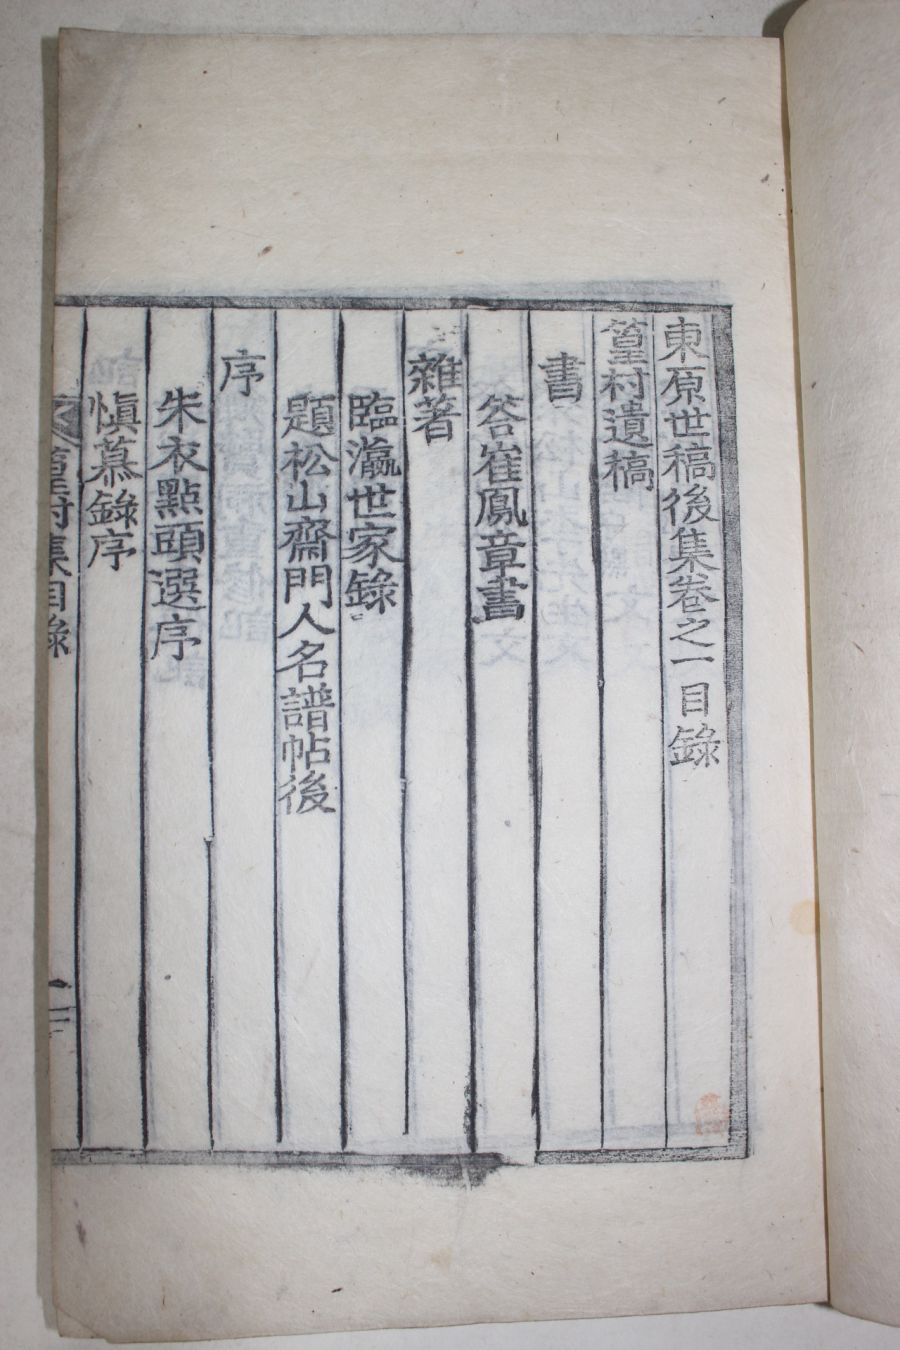 東原世稿後集卷之一目錄
篁村遺稿
書
答崔鳳章書
雜著
臨瀛世家錄
題松山齋門人名譜帖後
序
朱衣點頭選序
愼慕錄序
篁村集目錄